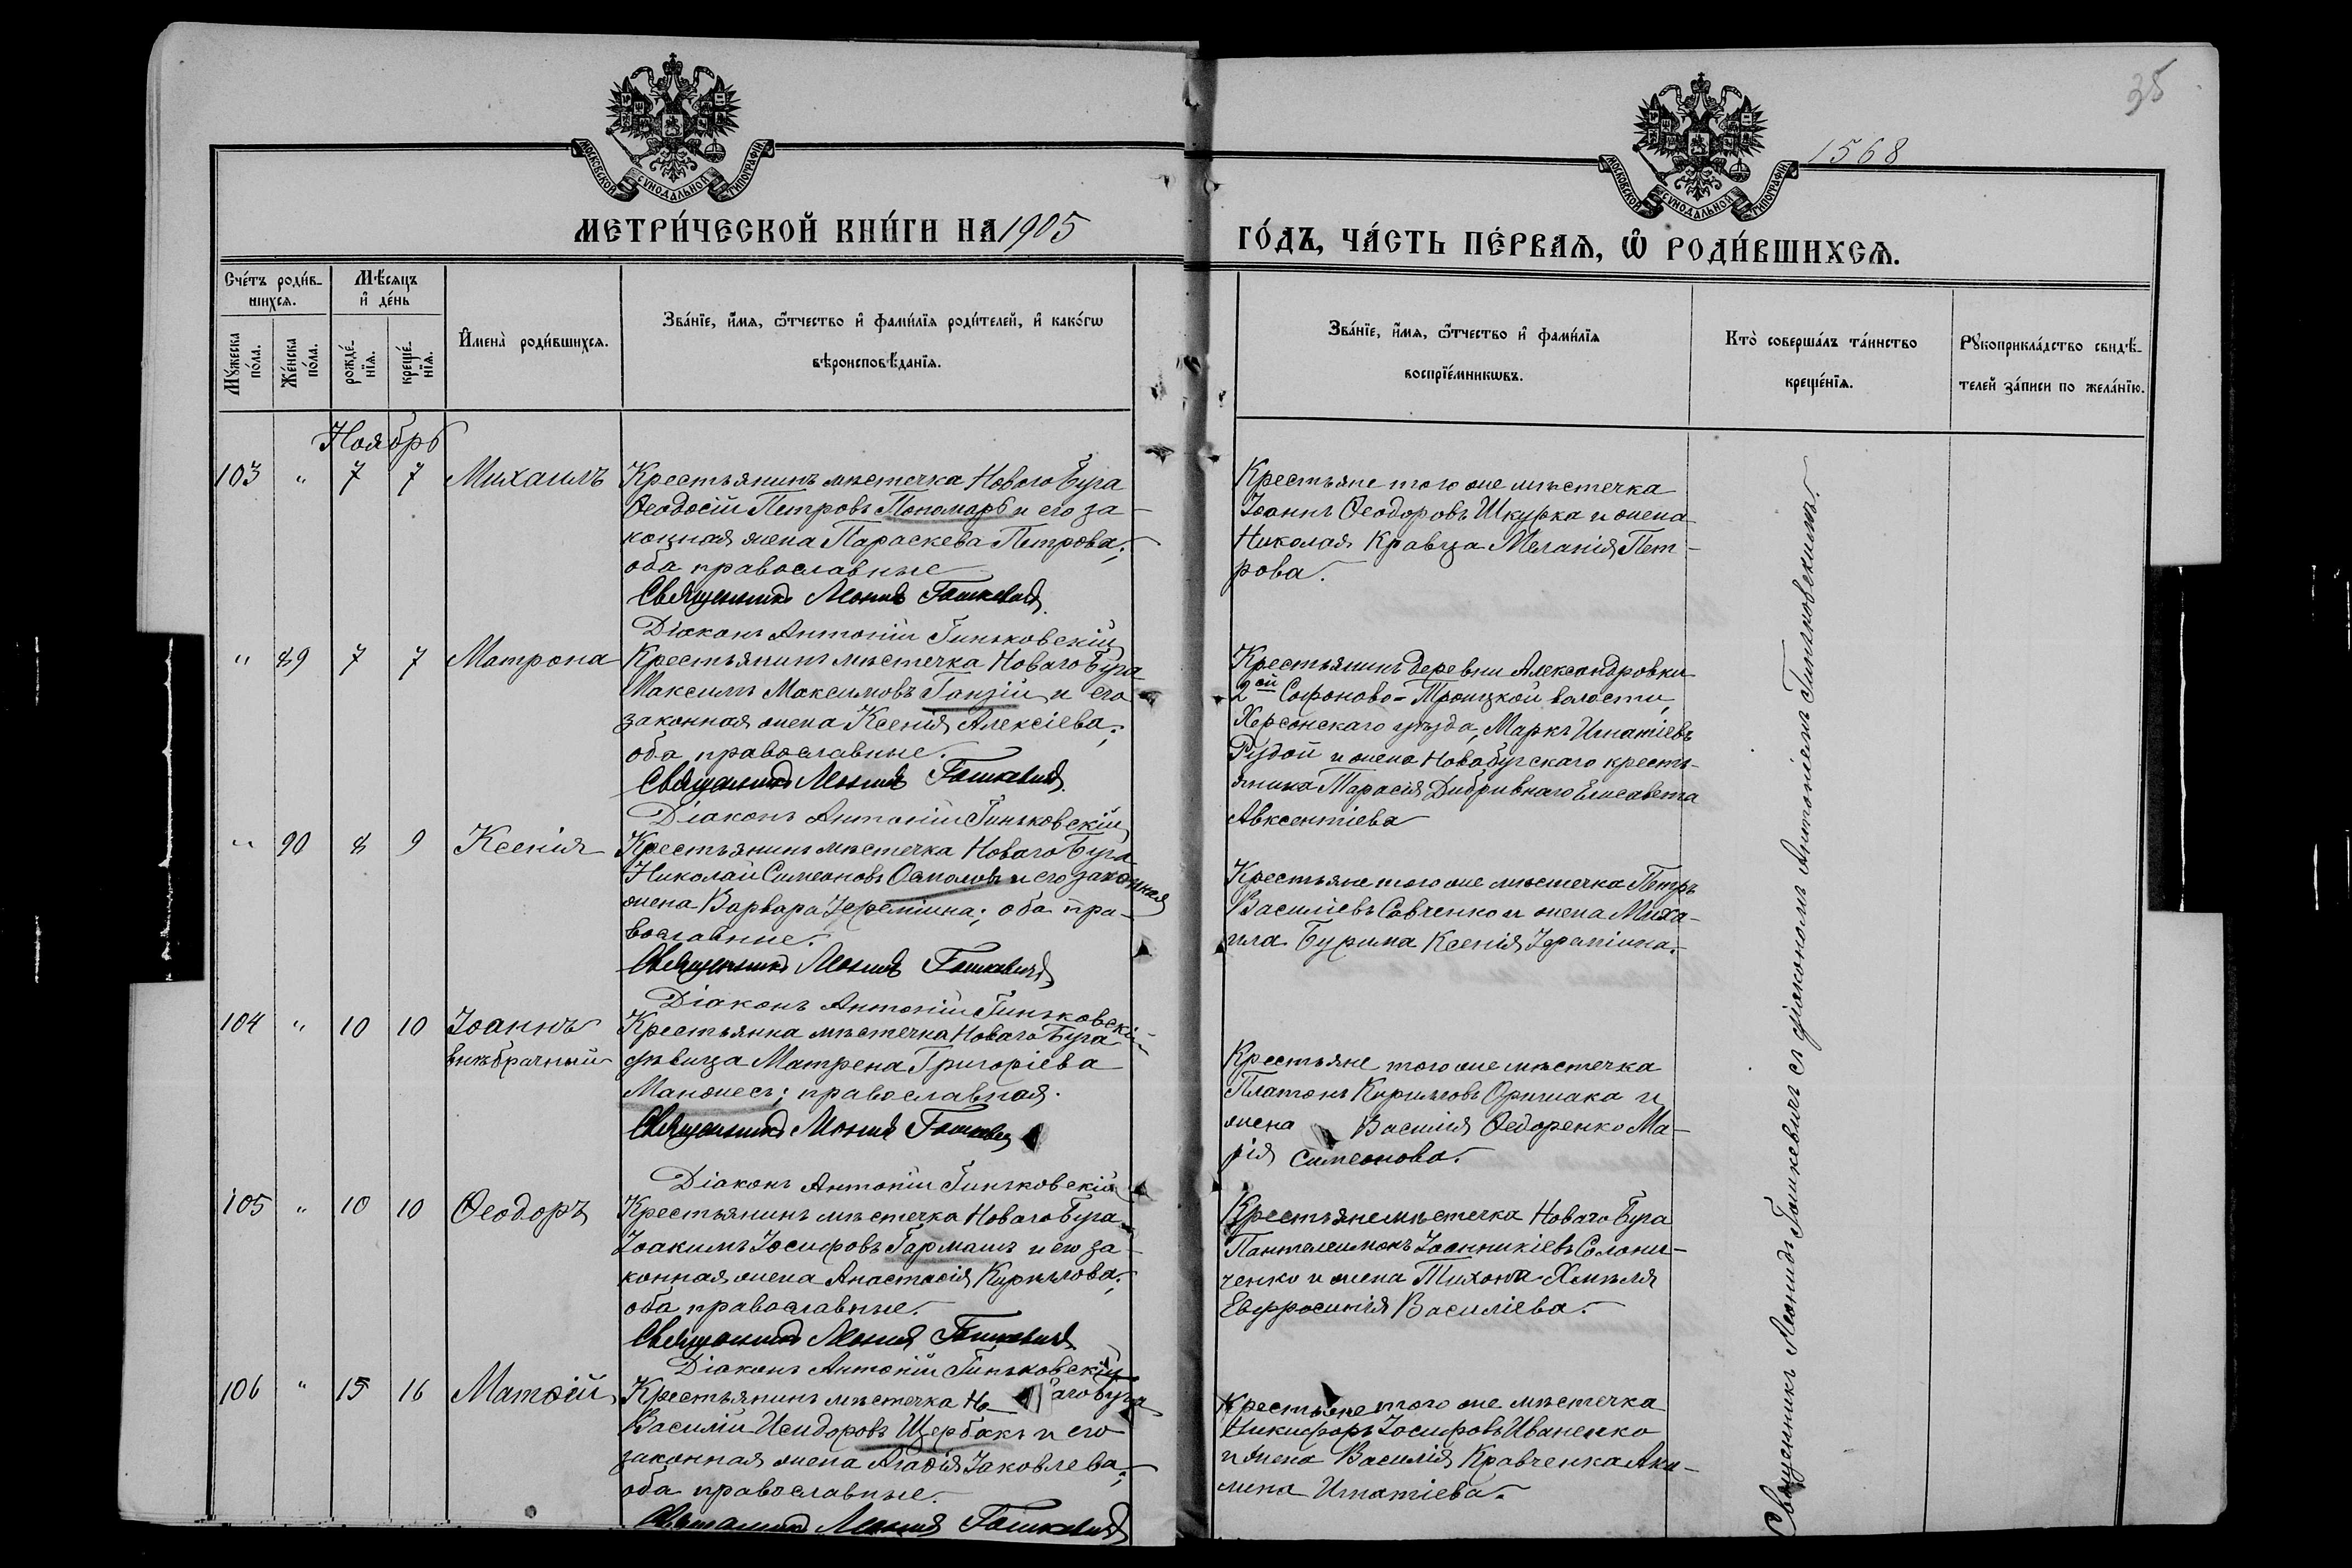 35
1568
МОСКОВСКОЙ СѴНОДАЛЬНОЙ ТИПОГРАФІИ
МОСКОВСКОЙ СѴНОДАЛЬНОЙ ТИПОГРАФІИ
МЕТРИ́ЧЕСКОЙ КНИ́ГИ НА 1905
ГО́ДЪ, ЧА́СТЬ ПЕ́РВАѦ, Ѡ҆ РОДИ́ВШИХСѦ.
Счéтъ роди́в-
шихсѧ.
Мѣ́сѧцъ
и҆ де́нь
Мꙋ́жеска
по́ла.
Же́нска
по́ла.
рожде́-
нїѧ.
креще́-
нїѧ.
И҆мена̀ роди́вшихсѧ.
Зва́нїе, и҆́мѧ, ѻ҆́тчество и҆ фами́лїѧ роди́телей, и҆ како́гѡ
вѣроисповѣ́данїѧ.
Зва́нїе, и҆́мѧ, ѻ҆́тчество и҆ фами́лїѧ
воспрїе́мникѡвъ.
Кто̀ соверша́лъ та́инство
креще́нїѧ.
Рꙋкоприкла́дство свидѣ́-
телей за́писи по жела́нїю.
Ноябрь
103 " 7 7 Михаилъ
Крестьянинъ мѣстечка Новаго Буга
Ѳеодосій Петровъ Пономарь и его за-
конная жена Параскева Петрова;
оба православные
Священникъ Леонидъ Гошкевичъ
Діаконъ Антоній Гиньковскій
Крестьяне того же мѣстечка
Іоаннъ Ѳеодоровъ Шкурка и жена
Николая Кравца Меланія Пет-
рова.
" 89 7 7 Матрона
Крестьянинъ мѣстечка Новаго Буга
Максимъ Максимовъ Ганзій и его
законная жена Ксенія Алексіева;
оба православные.
Священникъ Леонидъ Гошкевичъ
Діаконъ Антоній Гиньковскій
Крестьянинъ деревни Александровки
2ой Софоново-Троицкой волости,
Херсонскаго уѣзда, Маркъ Игнатіевъ
Рудой и жена Новобугскаго кресть-
янина Тарасія Дибривнаго Елисавета
Авксентіева
" 90 8 9 Ксенія
Крестьянинъ мѣстечка Новаго Буга
Николай Симеоновъ и его законная
жена Варвара Іереміина; оба пра-
вославные.
Священникъ Леонидъ Гошкевичъ
Діаконъ Антоній Гиньковскій
Крестьяне того же мѣстечка Петръ
Василіевъ Савченко и жена Миха-
ила Бурима Ксенія Іереміина.
104 " 10 10 Іоаннъ
внѣбрачный
Крестьянка мѣстечка Новаго Буга
дѣвица Матрена Григоріева
Манжесъ; православная.
Священникъ Леонидъ Гошкевичъ
Діаконъ Антоній Гиньковскій
Крестьяне того же мѣстечка
Платонъ Кириловъ Оришака и
жена Василія Ѳедоренко Ма-
рія Симеонова.
105 " 10 10 Ѳеодоръ
Крестьянинъ мѣстечка Новаго Буга
Іоакимъ Іосифовъ Гармашъ и его за-
конная жена Анастасія Кирилова;
оба православные.
Священникъ Леонидъ Гошкевичъ
Діаконъ Антоній Гиньковскій
Крестьяне мѣстечка Новаго Буга
Пантелеимонъ Іоанникіевъ Солони-
ченко и жена Тихона Хмѣля
Евфросинія Василіева.
106 " 15 16 Матѳій
Крестьянинъ мѣстечка Но аго Буга
Василій Исидоровъ Щербакъ и его
законная жена Агаѳія Іаковлева;
оба православные.
Священникъ Леонидъ Гошкевичъ
Крестьяне того же мѣстечка
Никифоръ Іосифовъ Иваненко
и жена Василія Кравченка Аки-
лина Игнатіева.
Священникъ Леонидъ Гошкевичъ съ діакономъ Антоніемъ Гиньковскимъ.